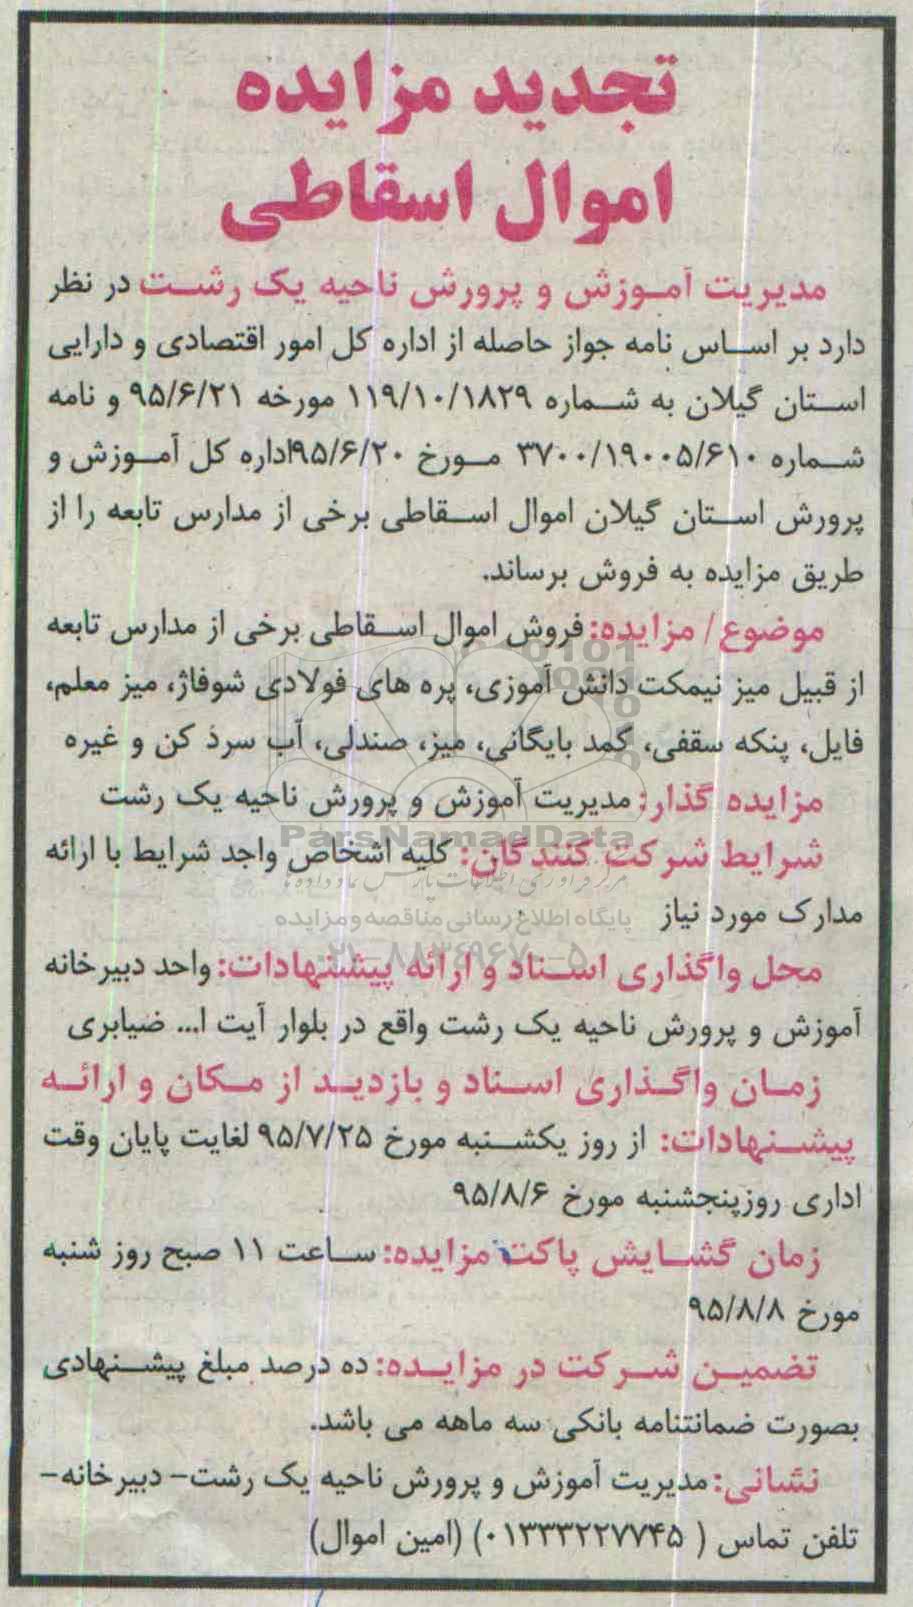 تجدید مزایده
اموال اسقاطی
مدیریت آموزش و پرورش ناحیه یک رشت در نظر
دارد بر اساس نامه جواز حاصله از اداره کل امور اقتصادی و دارایی
استان گیلان به شماره ۱۱۹/۱۰/۱۸۲۹ مورخه ۹۵/۶/۲۱ و نامه
شماره ۳۷۰۰/۱۹۰۰۵/۶۱۰ مورخ ۹۵/۶/۲۰اداره کل آموزش و
پرورش استان گیلان اموال اسقاطی برخی از مدارس تابعه را از
طریق مزایده به فروش برساند.
موضوع/ مزایده: فروش اموال اسقاطی برخی از مدارس تابعه
از قبیل میز نیمکت دانش آموزی، پره های فولادی شوفاژ، میز معلم،
فایل، پنکه سقفی، کمد بایگانی، میز، صندلی، آب سرد کن و غیره
مزایده گذار: مدیریت آموزش و پرورش ناحیه یک رشت
ParsNamadData
شرایط شرکت کنندگان: کلیه اشخاص واجد شرایط با ارائه
مرکز فرآوری اطلاعات پارس نماد داده ها
مدارک مورد نیاز
پایگاه اطلاع رسانی مناقصه و مزایده
۰۲۱-۸۸۳۴۹۶۷۰-۵
محل واگذاری اسناد و ارائه پیشنهادات: واحد دبیرخانه
آموزش و پرورش ناحیه یک رشت واقع در بلوار آیت ا... ضیابری
زمان واگذاری اسناد و بازدید از مکان و ارائه
پیشنهادات: از روز یکشنبه مورخ ۹۵/۷/۲۵ لغایت پایان وقت
اداری روزپنجشنبه مورخ ۹۵/۸/۶
زمان گشایش پاکت مزایده: ساعت ۱۱ صبح روز شنبه
مورخ ۹۵/۸/۸
تضمین شرکت در مزایده: ده درصد مبلغ پیشنهادی
بصورت ضمانتنامه بانکی سه ماهه می باشد.
نشانی: مدیریت آموزش و پرورش ناحیه یک رشت- دبیرخانه-
تلفن تماس ( ۰۱۳۳۳۲۲۷۷۴۵) (امین اموال)